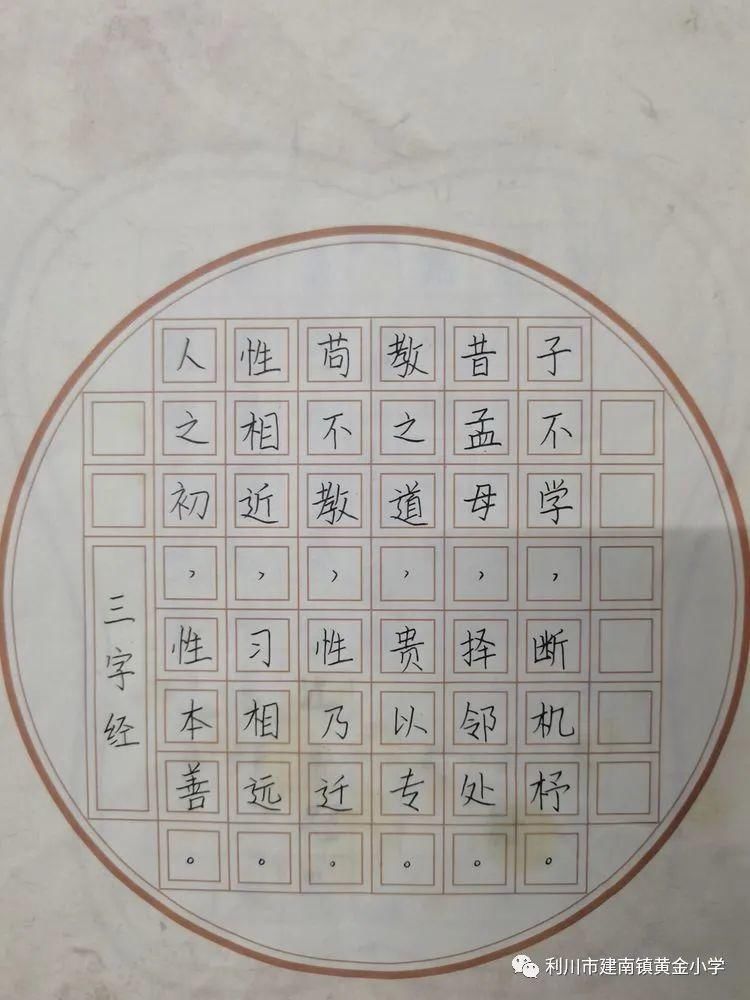 三字经
人之初，性本善。
性相近，习相远。
苟不教，性乃迁。
教之道，贵以专。
昔孟母，择邻处。
子不学，断机杼。
利川市建南镇黄金小学